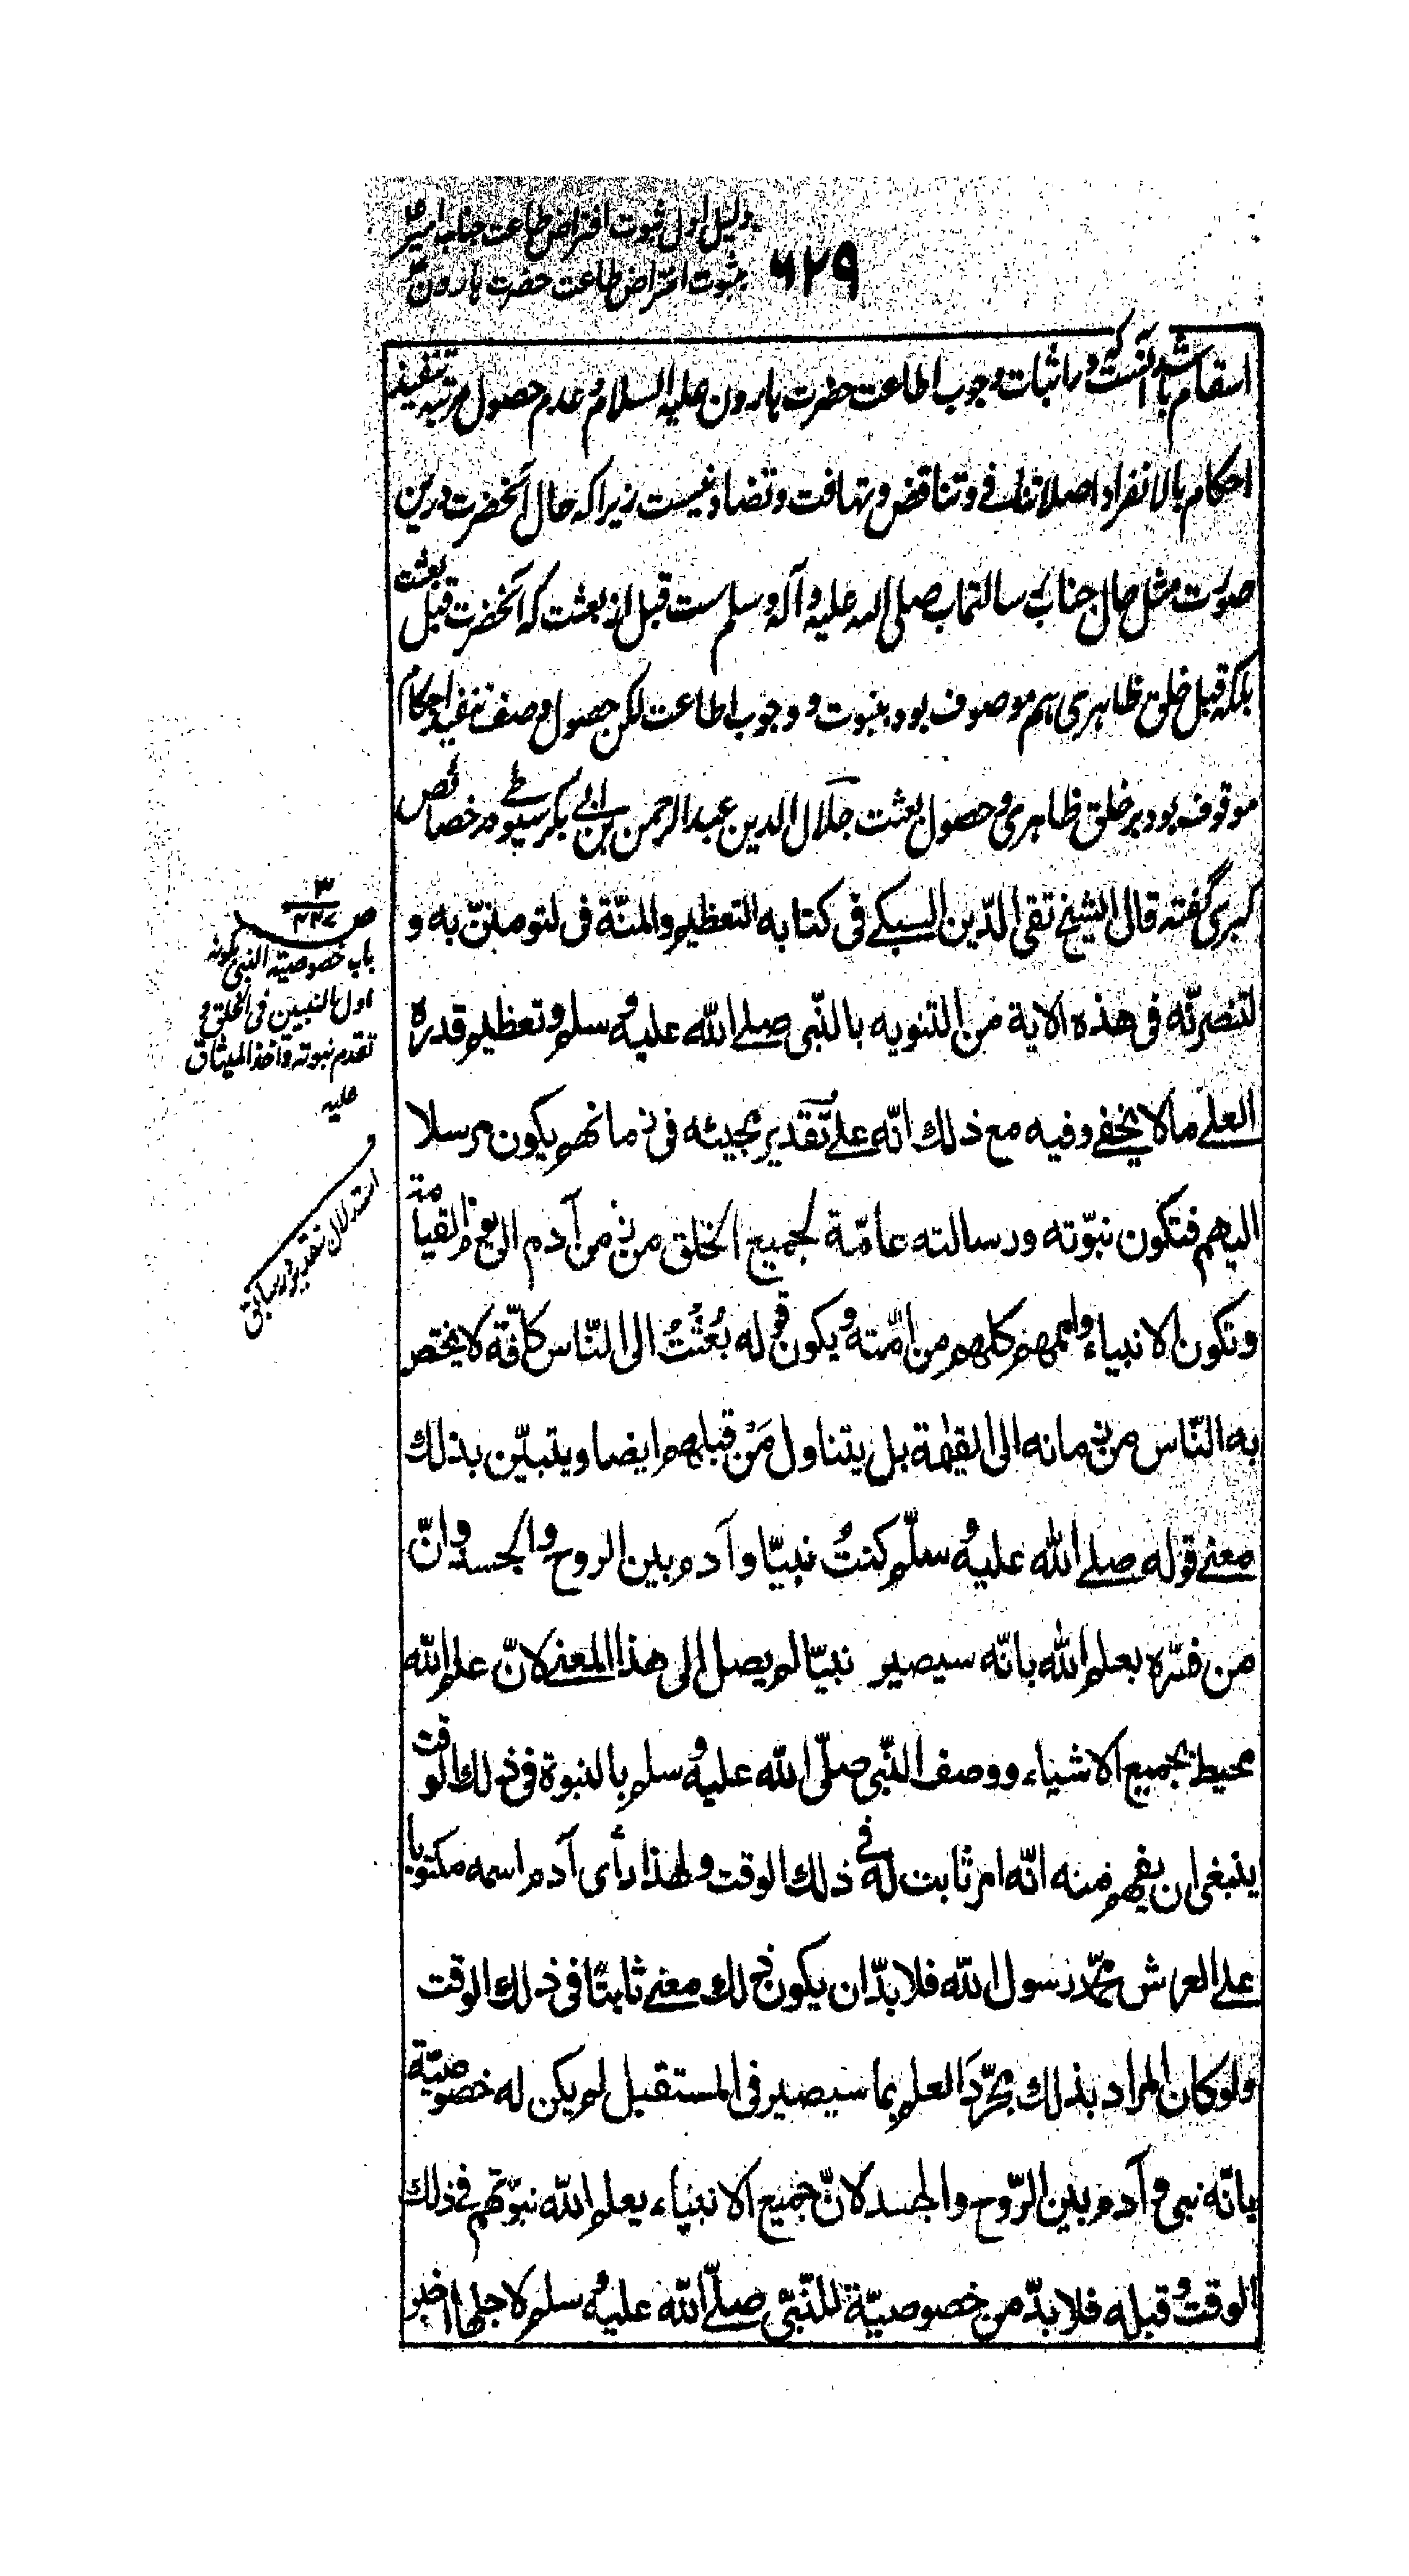 دلیل اول ثبوت افتراض طاعت جناب امیر ع
ثبوت افتراض طاعت حضرت هارون ع
۶۲۹
اسقام باشد آنست که در اثبات وجوب اطاعت حضرت هارون علیه السلام و عدم حصول مرتبه تنفیذ
احکام بالانفراد اصلا تنافی و تناقض و تهافت و تضاد نیست زیرا که حال آنحضرت درین
صورت مثل حال جناب رسالتماب صلی الله علیه و آله و سلم ست قبل از بعثت که آنحضرت قبل بعثت
بلکه قبل خلق ظاهری هم موصوف بود بنبوت و وجوب اطاعت لکن حصول وصف تنفیذ احکام
موقوف بود بر خلق ظاهری و حصول بعثت جلال الدین عبدالرحمن بن ابی بکر سیوطے در خصائص
کبری گفته قال الشیخ تقی الدّین السبکے فی کتابه التعظیم والمنّة فی لتومننّ به و
لتنصرنّه فی هذه الایة من التنویه بالنّبی صلے الله علیه و سلم وتعظیم قدره
العلے ما لا یخفے وفیه مع ذلك انّه علے تقدیر مجیئه فی زمانهم یکون مرسلا
الیهم فتکون نبوّته ورسالته عامّة لجمیع الخلق من زمن آدم الی یوم القیامة
وتکون الانبیاء واممهم کلهم من امّته ویکون قوله بُعثتُ الی النّاس کافّة لا یختص
به النّاس من زمانه الی القیمة بل یتناول مَن قبلهم ایضا ویتبیّن بذلك
معنے قوله صلے الله علیه وسلّم کنتُ نبیّا وآدم بین الروح والجسد وانّ
من فسّره بعلم الله بانّه سیصیر نبیّا لم یصل الی هذا المعنے لانّ علم الله
محیط بجمیع الاشیاء ووصف النّبی صلّی الله علیه وسلم بالنبوة فی ذلك الوقت
ینبغی ان یفهم منه انّه امر ثابت له فی ذلك الوقت ولهذا رأی آدم اسمه مکتوبا
علے العرش محمّد رسول الله فلا بدّ ان یکون ذلك معنے ثابتًا فی ذلك الوقت
ولو کان المراد بذلك مجرّد العلم بما سیصیر فی المستقبل لم یکن له خصوصیّة
بانّه نبی وآدم بین الرّوح والجسد لانّ جمیع الانبیاء یعلم الله نبوّتهم فی ذلك
الوقت وقبله فلا بدّ من خصوصیّة للنّبیّ صلّے الله علیه وسلم لاجلها اخبر
ص ۳/۲۳۷
باب خصوصیته النبی بکونه
اول النبیین فی الخلق و
تقدم نبوته و اخذ المیثاق
علیه